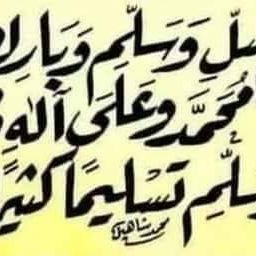 صلِّ وَسَلِّم وَبَارِك
مُحَمَّد وَعَلَى آلِهِ
سَلِّم تَسْلِيمًا كَثِيرًا
محمد شاهين